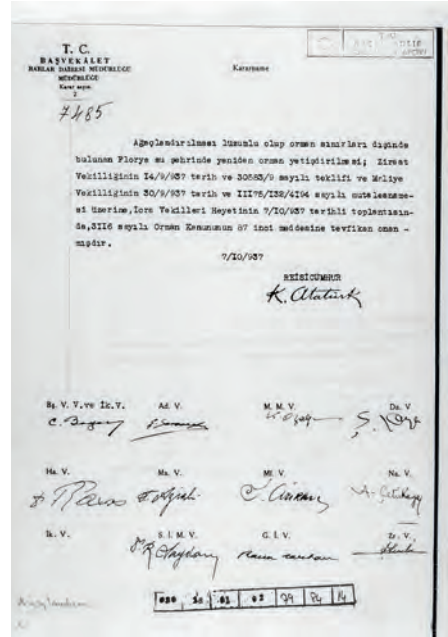 T. C.
BAŞVEKÂLET
KARARLAR DAİRESİ MÜDÜRLÜĞÜ
MÜDÜRLÜĞÜ
Karar sayısı
2
7485
Kararname
Ağaçlandırılması lüzumlu olup orman sınırları dışında
bulunan Florya su şehrinde yeniden orman yetiştirilmesi; Ziraat
Vekilliğinin I4/9/937 tarih ve 30583/9 sayılı teklifi ve Maliye
Vekilliğinin 30/9/937 tarih ve III75/I32/4I94 sayılı mutaleaname-
si üzerine,İcra Vekilleri Heyetinin 7/I0/937 tarihli toplantısın-
da,3II6 sayılı Orman Kanununun 87 inci maddesine tevfikan onan -
mışdır.
7/I0/937
REİSİCUMHUR
K. Atatürk
Bş. V. V. ve İk. V.
Ad. V.
M. M. V.
Da. V
C. Bayar
Ş. Kaya
Ha. V.
Ma. V.
Mf. V.
Na. V.
A. Çetinkaya
İk. V.
S. İ. M. V.
G. İ. V.
Zr. V.
030 18 01 02 79 84 14